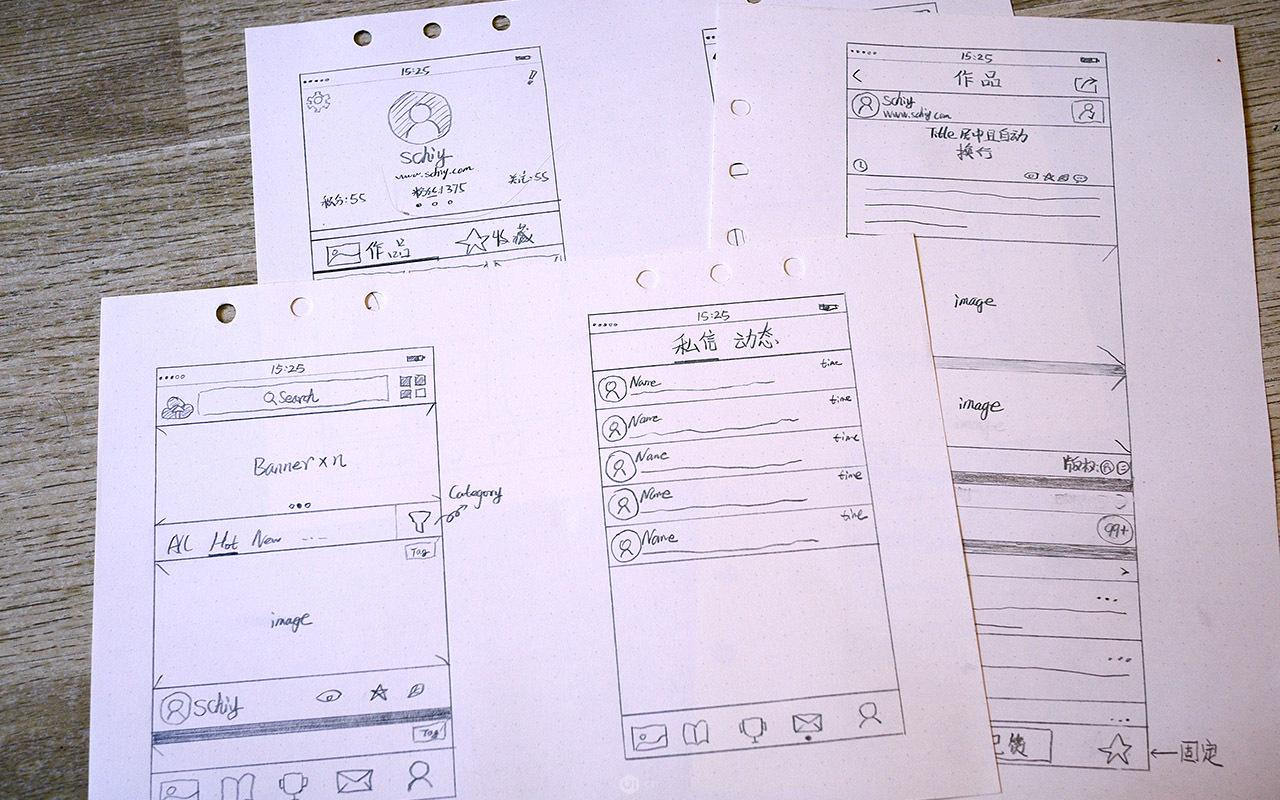 15:25
schiy
www.schiy.com
积分:55
粉丝:1375
关注:55
作品
收藏
15:25
作品
schiy
www.schiy.com
Title 居中且自动
换行
image
image
版权:
99+
固定
15:25
Search
Banner x n
Category
All Hot New ...
Tag
image
schiy
Tag
15:25
私信 动态
Name
time
Name
time
Name
time
Name
time
Name
time